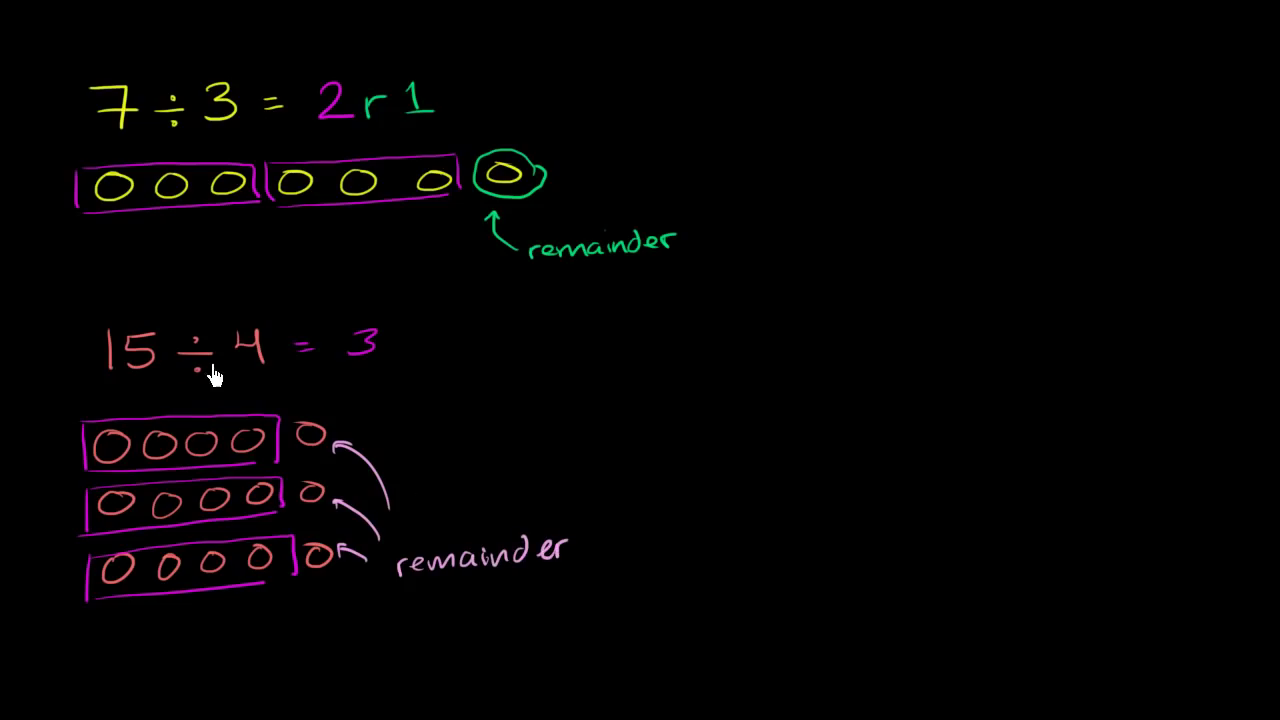 7 ÷ 3 = 2 r 1
remainder
15 ÷ 4 = 3
remainder